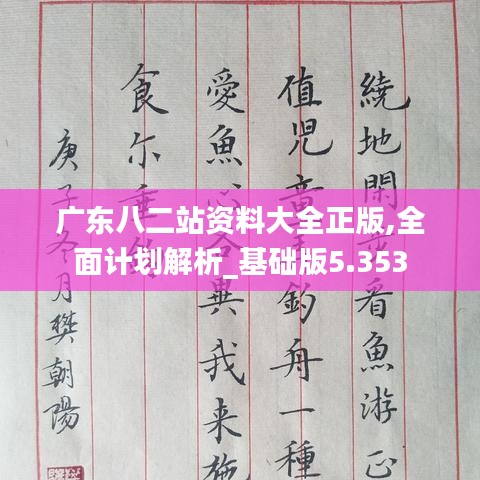 繞地閒步看魚游正
值児童釣舟一種
愛魚心各異我来施
食尔垂鈎
庚子冬月樊朝陽
广东八二站资料大全正版,全
面计划解析_基础版5.353